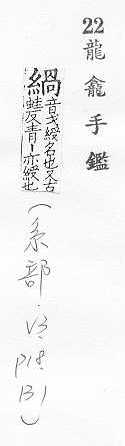 22 龍龕手鑑
緺 音戈綬名也又古
蛙反青丨亦綬也
(糸部·V3
B1)